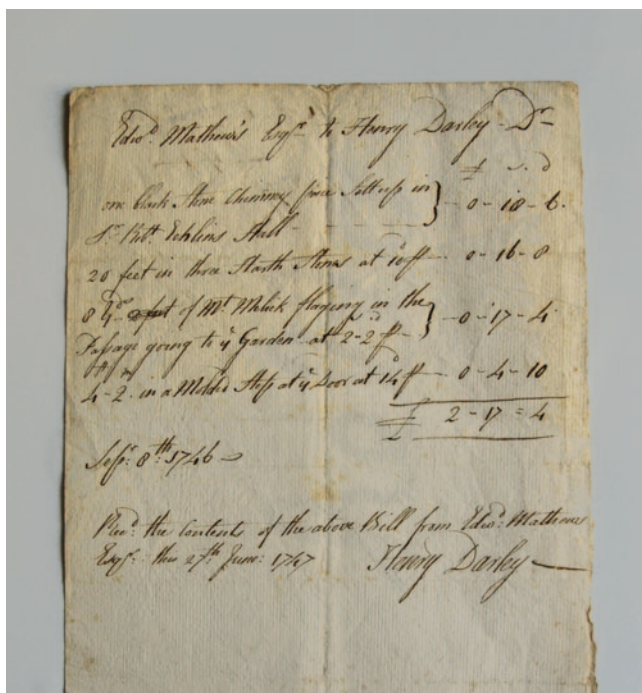 Edwd. Mathews Esqr. to Henry Darley - Dr
£ s. d
one black Stone Chimney piece Sett up in
Sr. Robt. Echlins Hall - - - - - } - 0 - 18 - 6.
20 feet in three Harth Stones at 10d ft - 0 - 16 - 8
8 yds of Mt. Melick flaging in the
Passage going to ye Garden - at 2 - 2 p - } - 0 - 17 - 4
4 - 2. in a Molded Step at ye Door at 14d ft - 0 - 4 - 10
£ 2 - 17 = 4
Sepr. 8th. 1746
Recd. the Contents of the above Bill from Edwd. Mathews
Esqr. this 27th. June: 1747 Henry Darley